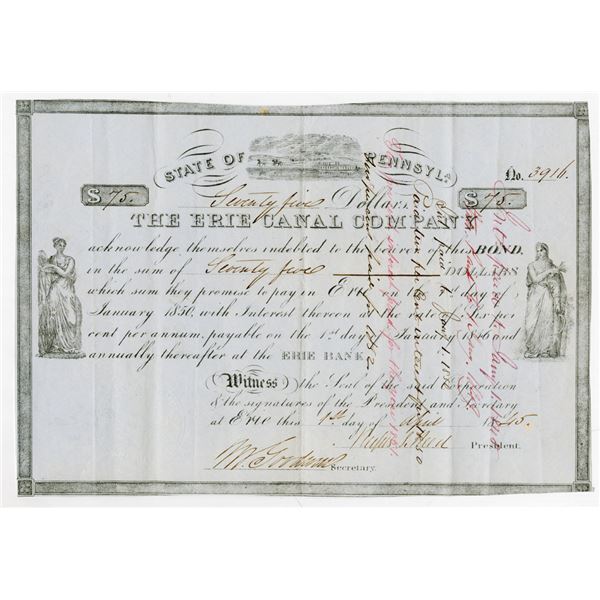 STATE OF PENNSYLA.
No. 3916.
$ 75. Seventy five Dollars $ 75.
THE ERIE CANAL COMPANY
acknowledge themselves indebted to the bearer of this BOND,
in the sum of Seventy five DOLLARS
which sum they promise to pay in Erie on the 1st day of
January 1850, with Interest thereon at the rate of six per
cent per annum, payable on the 1st day of January 1846 and
annually thereafter at the ERIE BANK.
Witness the Seal of the said Corporation
& the signatures of the President and Secretary
at Erie this 1st day of April 1845.
Rufus S. Reed President.
Wm. Goodwin
Secretary.